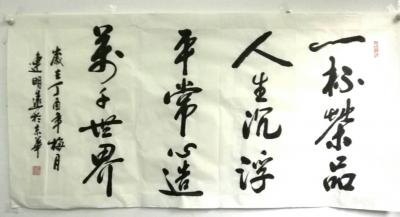 一杯荣品
人生沉浮
平常心造
萬千世界
歲在丁酉年梅月
連明書於京華